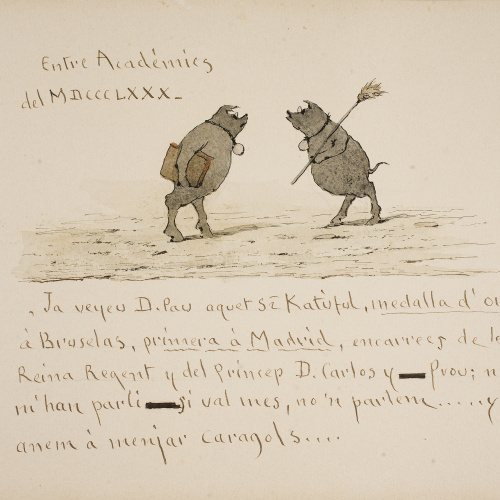 Entre Académics
del MDCCCLXXX_
, Ja veyeu D. Pau aquet Sr Katúful, medalla d'or
à Bruselas, primera à Madrid, encarrecs de la
Reina Regent y del Príncep D. Carlos y Prou; n
m'han parli si val mes, no'n parlem.....y
anem à menjar caragols....